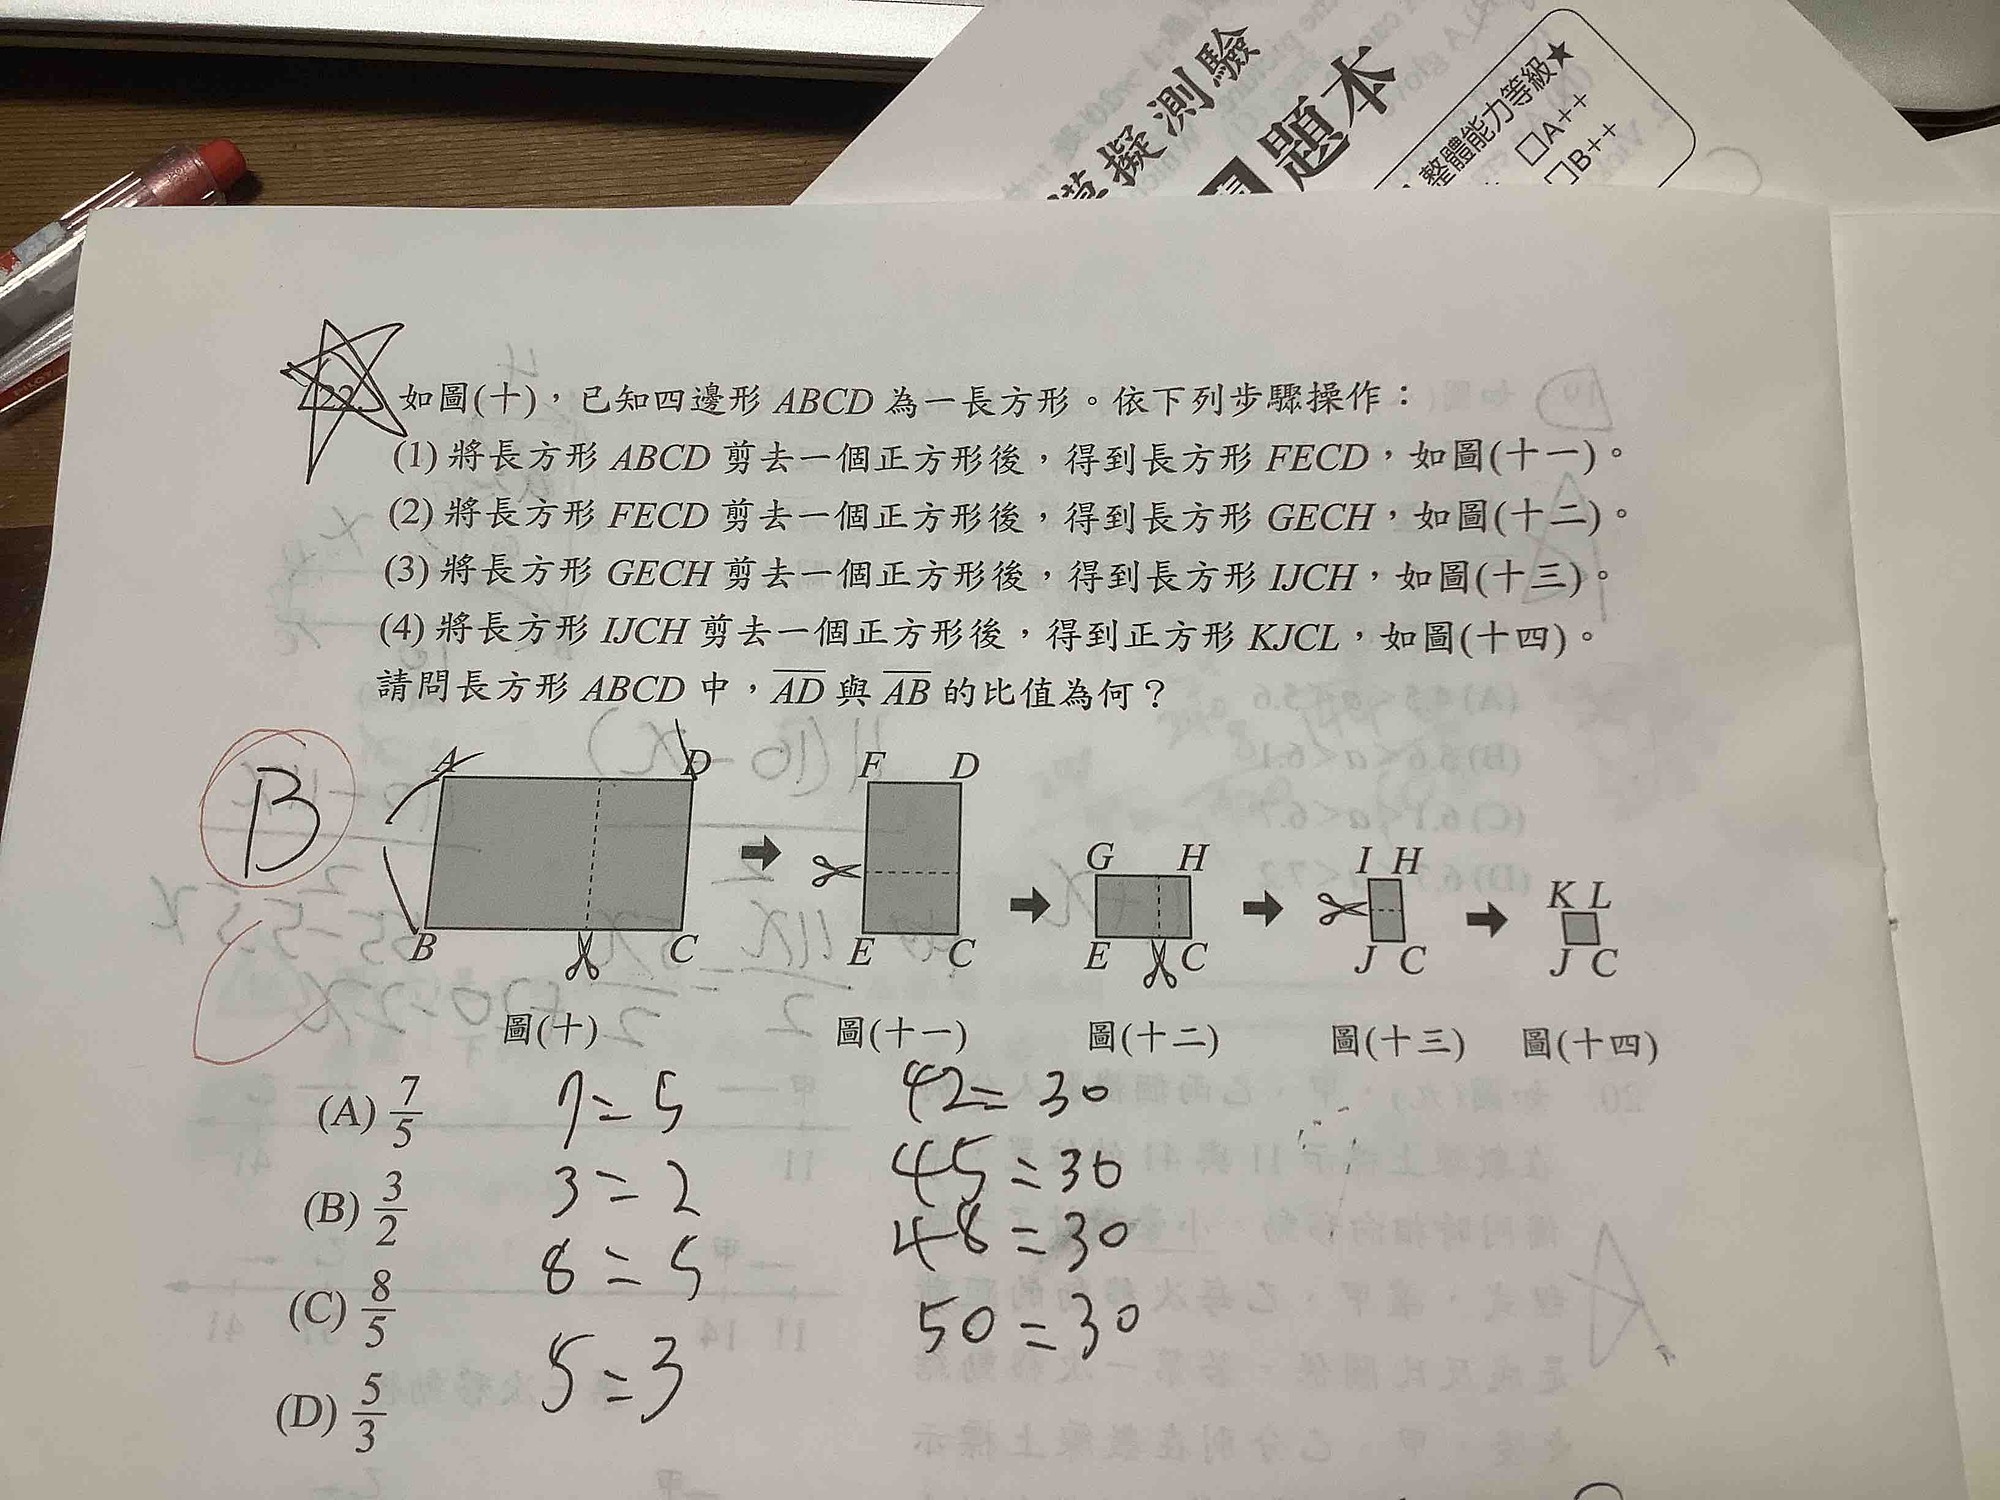 模擬測驗
題本
整體能力等級★
□A++
□B++
22. 如圖(十)，已知四邊形 ABCD 為一長方形。依下列步驟操作：
(1) 將長方形 ABCD 剪去一個正方形後，得到長方形 FECD，如圖(十一)。
(2) 將長方形 FECD 剪去一個正方形後，得到長方形 GECH，如圖(十二)。
(3) 將長方形 GECH 剪去一個正方形後，得到長方形 IJCH，如圖(十三)。
(4) 將長方形 IJCH 剪去一個正方形後，得到正方形 KJCL，如圖(十四)。
請問長方形 ABCD 中，AD 與 AB 的比值為何？
B
A D F D
G H I H K L
B C E C E C J C J C
圖(十) 圖(十一) 圖(十二) 圖(十三) 圖(十四)
(A) 7/5 7=5 42=30
(B) 3/2 3=2 45=30
(C) 8/5 8=5 48=30
(D) 5/3 5=3 50=30